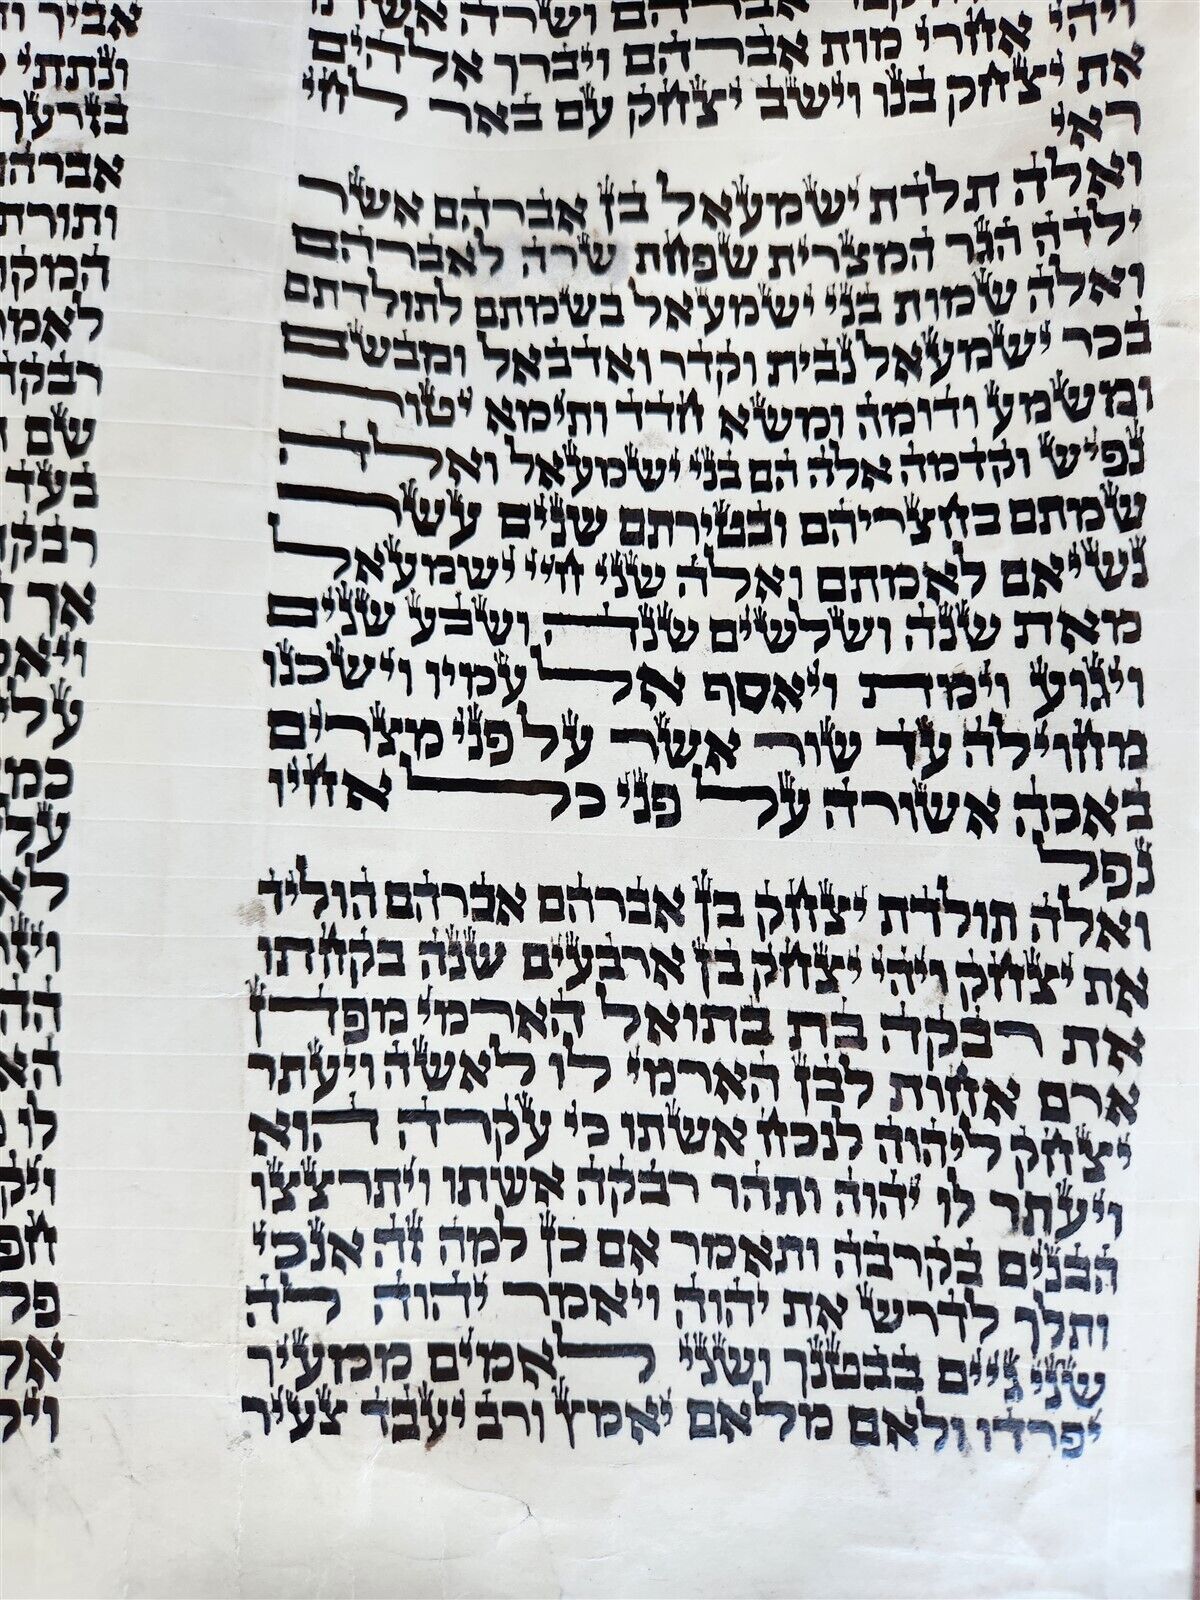 אברהם ושרה אשתו
ויהי אחרי מות אברהם ויברך אלהים
את יצחק בנו וישב יצחק עם באר לחי
ראי
ואלה תלדת ישמעאל בן אברהם אשר
ילדה הגר המצרית שפחת שרה לאברהם
ואלה שמות בני ישמעאל בשמתם לתולדתם
בכר ישמעאל נבית וקדר ואדבאל ומבשם
ומשמע ודומה ומשא חדד ותימא יטור
נפיש וקדמה אלה הם בני ישמעאל ואלה
שמתם בחצריהם ובטירתם שנים עשר
נשיאם לאמתם ואלה שני חיי ישמעאל
מאת שנה ושלשים שנה ושבע שנים
ויגוע וימת ויאסף אל עמיו וישכנו
מחוילה עד שור אשר על פני מצרים
באכה אשורה על פני כל אחיו
נפל
ואלה תולדת יצחק בן אברהם אברהם הוליד
את יצחק ויהי יצחק בן ארבעים שנה בקחתו
את רבקה בת בתואל הארמי מפדן
ארם אחות לבן הארמי לו לאשה ויעתר
יצחק ליהוה לנכח אשתו כי עקרה הוא
ויעתר לו יהוה ותהר רבקה אשתו ויתרצצו
הבנים בקרבה ותאמר אם כן למה זה אנכי
ותלך לדרש את יהוה ויאמר יהוה לה
שני גיים בבטנך ושני לאמים ממעיך
יפרדו ולאם מלאם יאמץ ורב יעבד צעיר
ונתתי
בזרעך
ותורת
שם
בעד
אך